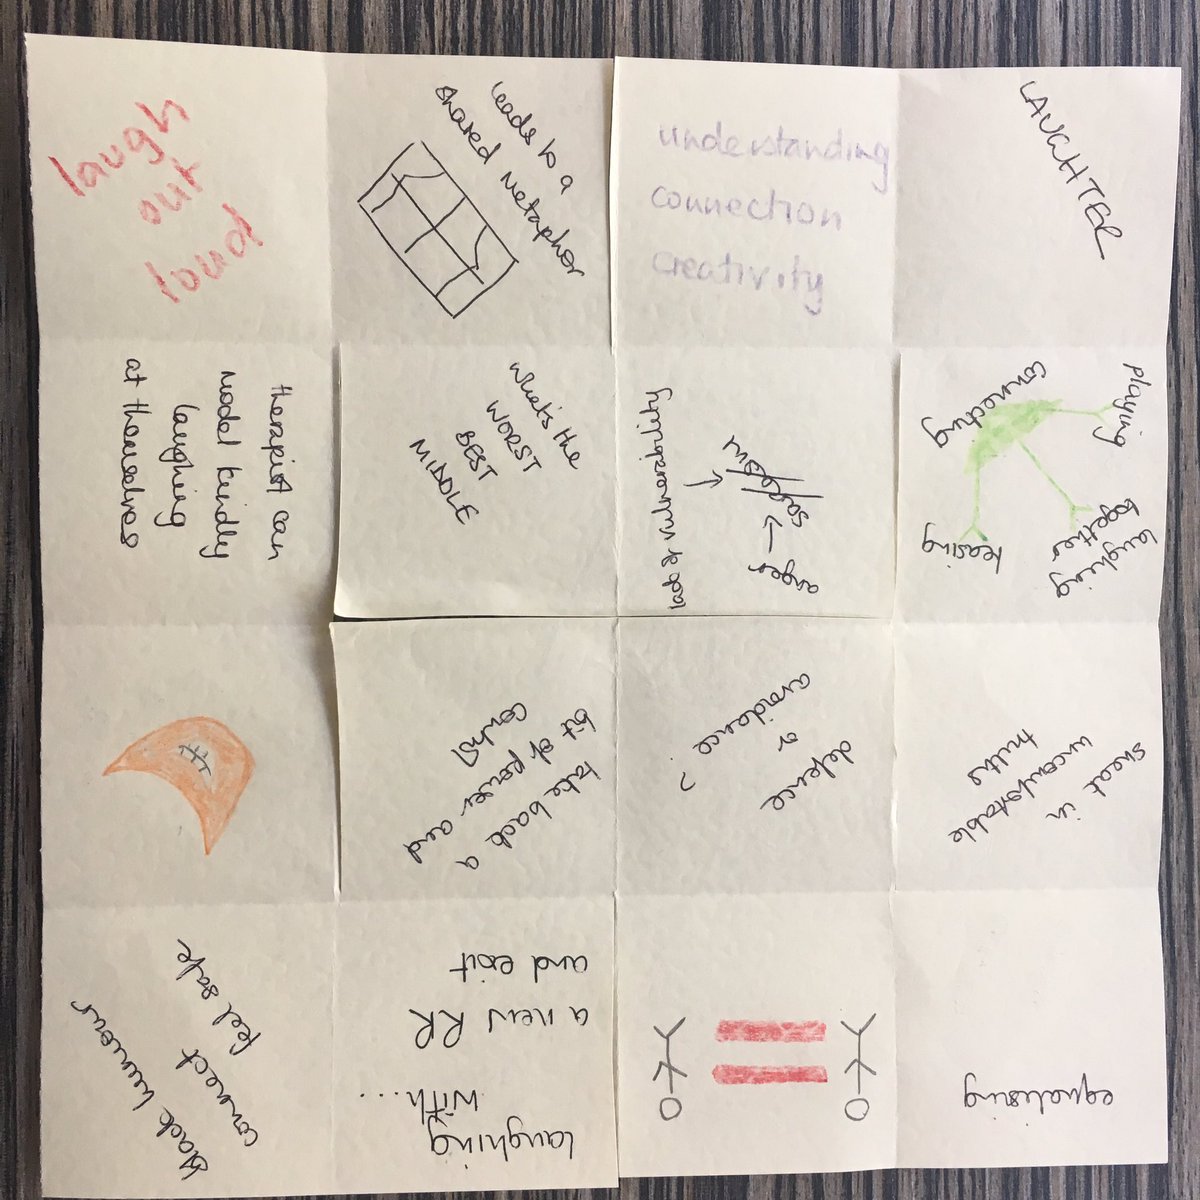 laugh
out
loud
leads to a
shared metaphor
understanding
connection
creativity
LAUGHTER
therapist can
model kindly
laughing
at themselves
what's the
WORST
BEST
MIDDLE
loop & reciprocality
anger
playing
connecting
laughing
together
teasing
take back a
bit of power and
control
defence
or
avoidence
?
sneak in
uncomfortable
truths
black humour
connect
feel safe
laughing
with...
a new RR
and exit
equalising